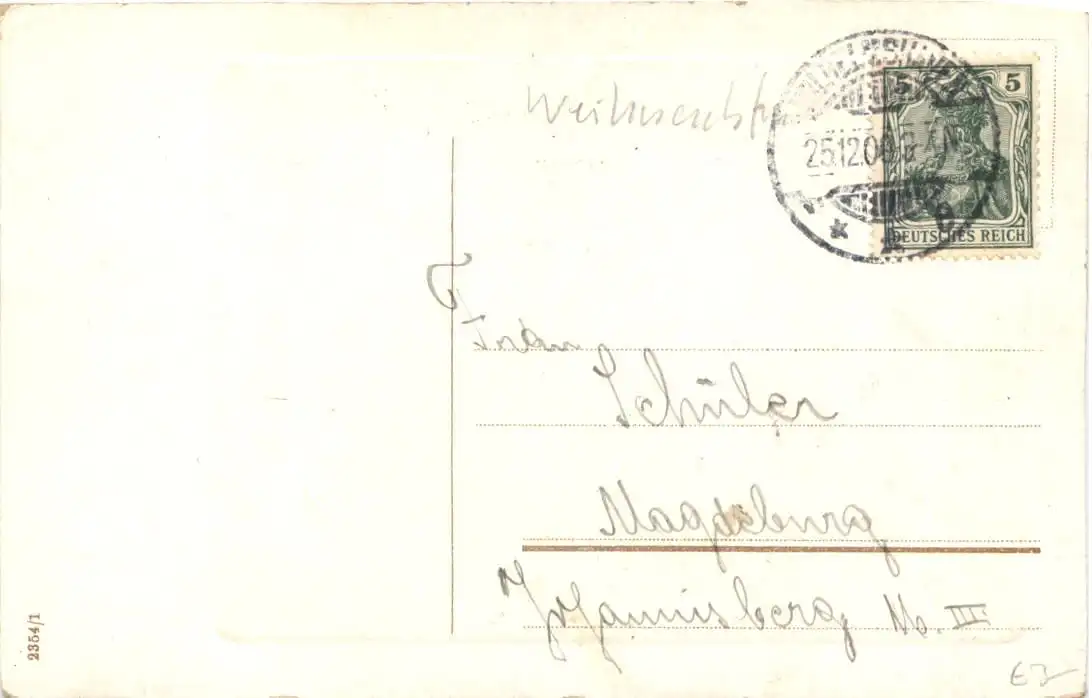 5 5
25.12.06
DEUTSCHES REICH
Frau
Schüler
Magdeburg
Johannisberg No. III
2354/1
€3